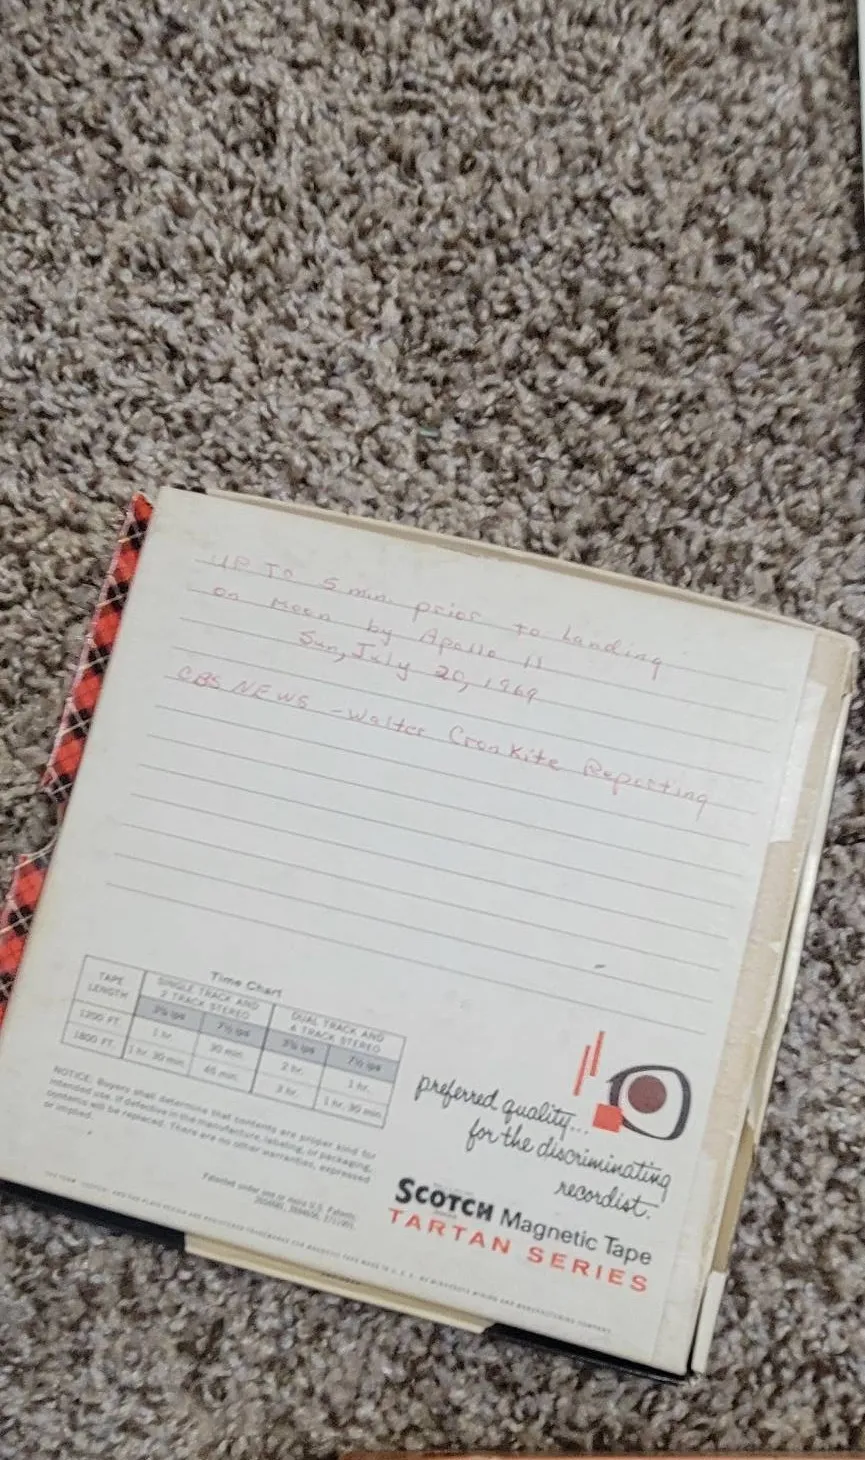 UP To 5 min. prior to Landing
on Moon by Apollo 11
Sun, July 20, 1969
CBS NEWS - Walter Cronkite Reporting
Time Chart
TAPE LENGTH
SINGLE TRACK AND 2 TRACK STEREO
DUAL TRACK AND 4 TRACK STEREO
3¾ ips 7½ ips 3¾ ips 7½ ips
1200 FT. 1 hr. 30 min. 2 hr. 1 hr.
1800 FT. 1 hr. 30 min. 45 min. 3 hr. 1 hr. 30 min.
NOTICE: Buyers shall determine that contents are proper kind for
intended use. If defective in the manufacture, labeling, or packaging,
contents will be replaced. There are no other warranties, expressed
or implied.
Patented under one or more U.S. Patents:
preferred quality...
for the discriminating
recordist.
SCOTCH Magnetic Tape
TARTAN SERIES